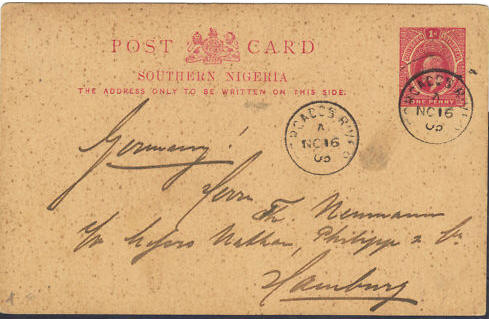 POST CARD
SOUTHERN NIGERIA
THE ADDRESS ONLY TO BE WRITTEN ON THIS SIDE.
1D
ONE PENNY
FORCADOS RIVER
A
NO 16
05
FORCADOS RIVER
A
NO 16
05
Germany!
Herrn
Th. Neumann
c/o Messrs Nathan, Philipp & Co
Hamburg